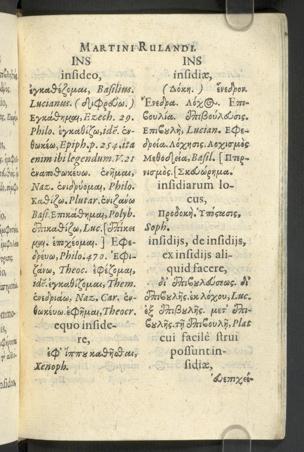 MARTINI RULANDI.
INS
insideo,
ἐγκαθέζομαι, Basilius.
Lucianus.
Ἐγκάθημαι, Ezech. 29.
Philo. ἐγκαθίζω, idē.
Epiph. p. 254. ita
enim ibi legendum. V. 21
ἐναποθωκεύω.
Naz. ἐνιδρύομαι, Philo.
Καθίζω, Plutar. ἐνιζάνω
Bas. Ἐπικάθημαι, Polyb.
ἐπικαθίζω, Luc.
ἐποχέομαι. ] Ἐφε-
δρεύω, Philo. 470. Ἐφι-
ζάνω, Theoc. ἐφέζομαι,
idē. ἐγκαθέζομαι, Them.
ἐνεδριάω, Naz. Car.
ἔφημαι, Theocr.
equo inside-
re,
ἐφ' ἵππου καθῆσθαι,
Xenoph.
INS
insidiæ,
ἔνεδρον.
Ἐνέδρα. Λόχος. Ἐπι-
βουλία.
Ἐπιβουλή, Lucian. Ἐφε-
δρεία. Λόχησις. Λοχισμός
Μεθοδεία, Basil.
insidiarum lo-
cus,
Προδοκή. Ὑπόστασις,
Soph.
insidijs, de insidijs,
ex insidijs ali-
quid facere,
δι' ἐπιβουλεύσεως. δι'
ἐπιβουλῆς. ἐκ λόχου, Luc.
ἐξ ἐπιβουλῆς. μετ' ἐπι-
βουλῆς. τῇ ἐπιβουλῇ, Plat
cui facilè strui
possunt in-
sidiæ,